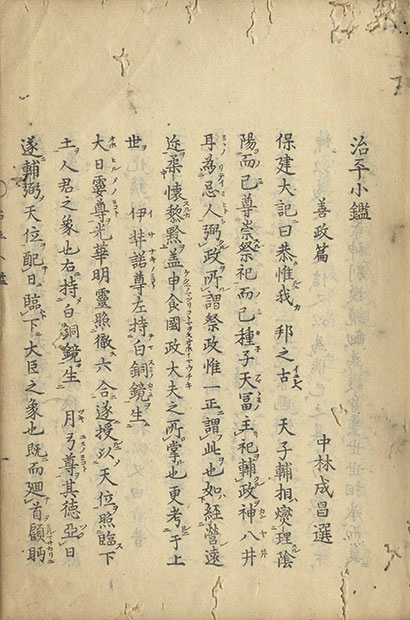 治平小鑑
善政篇　中林成昌選
保建大記曰恭惟我　邦之古　天子輔相燮理陰
陽而已尊崇祭祀而已種子天冨主祀輔政神八井
耳為忌人弼政所謂祭政惟一正謂此也如經營遠
近柔懷黎黔蓋申食國政大夫之所掌也更考于上
世　伊弉諾尊左持白銅鏡生
大日孁尊光華明靈照徹六合遂授以天位照臨下
土人君之象也右持白銅鏡生　月弓尊其德亞日
遂輔弼天位配日臨下大臣之象也既而廻首顧眄